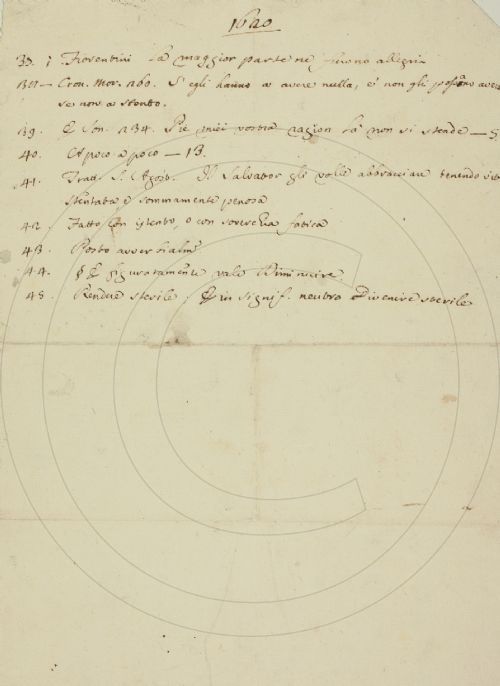 1620
Fiorentini la maggior parte ne furono allegri
Cron. Mor. 260. S'egli hanno a avere nulla, e' non gli possono avere
se non a stento.
39. E son. 234. Piè miei vostra ragion là non si stende — 5
40. E a poco a poco — 13.
41. Tratt. S. Agost. Il Salvator gli volle abbracciare tenendo vita
stentata e sommamente penosa
42. Fatto con istento, o con soverchia fatica
43. Posto avverbialm
44. figuratamente vale Diminuire
45. Rendere sterile, E in signif. neutro Divenire sterile